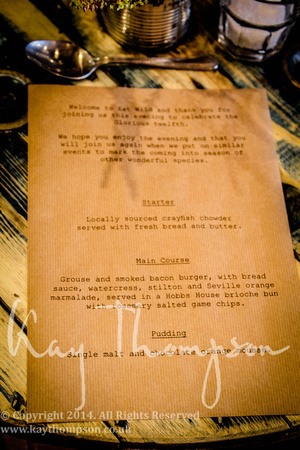 Welcome to Eat Wild and thank you for
joining us this evening to celebrate the
Glorious Twelfth.
We hope you enjoy the evening and that you
will join us again when we put on similar
events to mark the coming into season of
other wonderful species.
Starter
Locally sourced crayfish chowder
served with fresh bread and butter.
Main Course
Grouse and smoked bacon burger, with bread
sauce, watercress, stilton and Seville orange
marmalade, served in a Hobbs House brioche bun
with rosemary salted game chips.
Kay Thompson
Pudding
Single malt and chocolate orange mousse.
© Copyright 2014. All Rights Reserved
www.kaythompson.co.uk